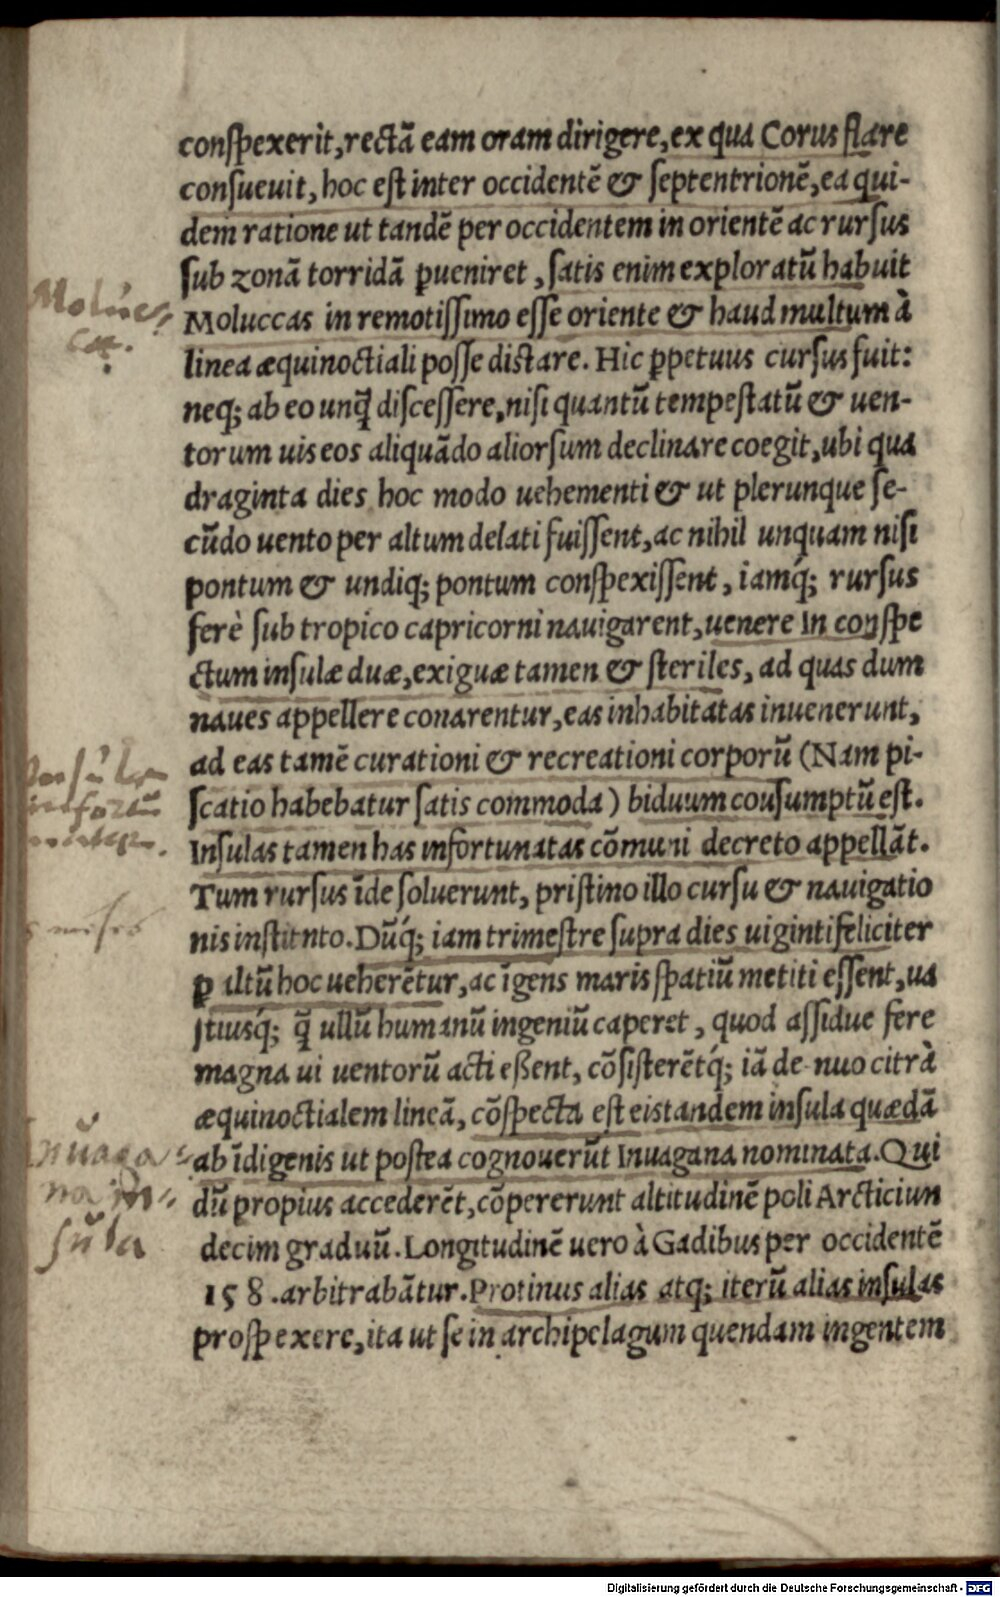 conspexerit, rectā eam oram dirigere, ex qua Corus flare
consueuit, hoc est inter occidentē & septentrionē, ea qui-
dem ratione ut tandē per occidentem in orientē ac rursus
sub zonā torridā ꝑueniret, satis enim exploratū habuit
Moluccas in remotissimo esse oriente & haud multum à
linea æquinoctiali posse distare. Hic ꝑpetuus cursus fuit:
neq; ab eo unq̃ discessere, nisi quantū tempestatū & uen-
torum uis eos aliquādo aliorsum declinare coegit, ubi qua
draginta dies hoc modo uehementi & ut plerunque se-
cūdo uento per altum delati fuissent, ac nihil unquam nisi
pontum & undiq; pontum conspexissent, iamq́; rursus
ferè sub tropico capricorni nauigarent, uenere in conspe
ctum insulæ duæ, exiguæ tamen & steriles, ad quas dum
naues appellere conarentur, eas inhabitatas inuenerunt,
ad eas tamē curationi & recreationi corporū (Nam pi-
scatio habebatur satis commoda) biduum cousumptū est.
Insulas tamen has infortunatas cōmuni decreto appellāt.
Tum rursus īde soluerunt, pristino illo cursu & nauigatio
nis institnto. Dūq́; iam trimestre supra dies uiginti feliciter
ꝑ altū hoc ueherētur, ac īgens maris spatiū metiti essent, ua
stiusq́; q̃ ullū humanū ingeniū caperet, quod assidue fere
magna ui uentorū acti eßent, cōsisterētq́; iā de nuo citrà
æquinoctialem lineā, cōspecta est eis tandem insula quædā
ab īdigenis ut postea cognouerūt Inuagana nominata. Qui
dū propius accederēt, cōpererunt altitudinē poli Arcticiun
decim graduū. Longitudinē uero à Gadibus per occidentē
158. arbitrabātur. Protinus alias atq; iterū alias insulas
prospexere, ita ut se in archipelagum quendam ingentem
Moluc-
cæ.
Insulæ
infortū
natæ.
Inuaga-
na in-
sula
Digitalisierung gefördert durch die Deutsche Forschungsgemeinschaft - DFG